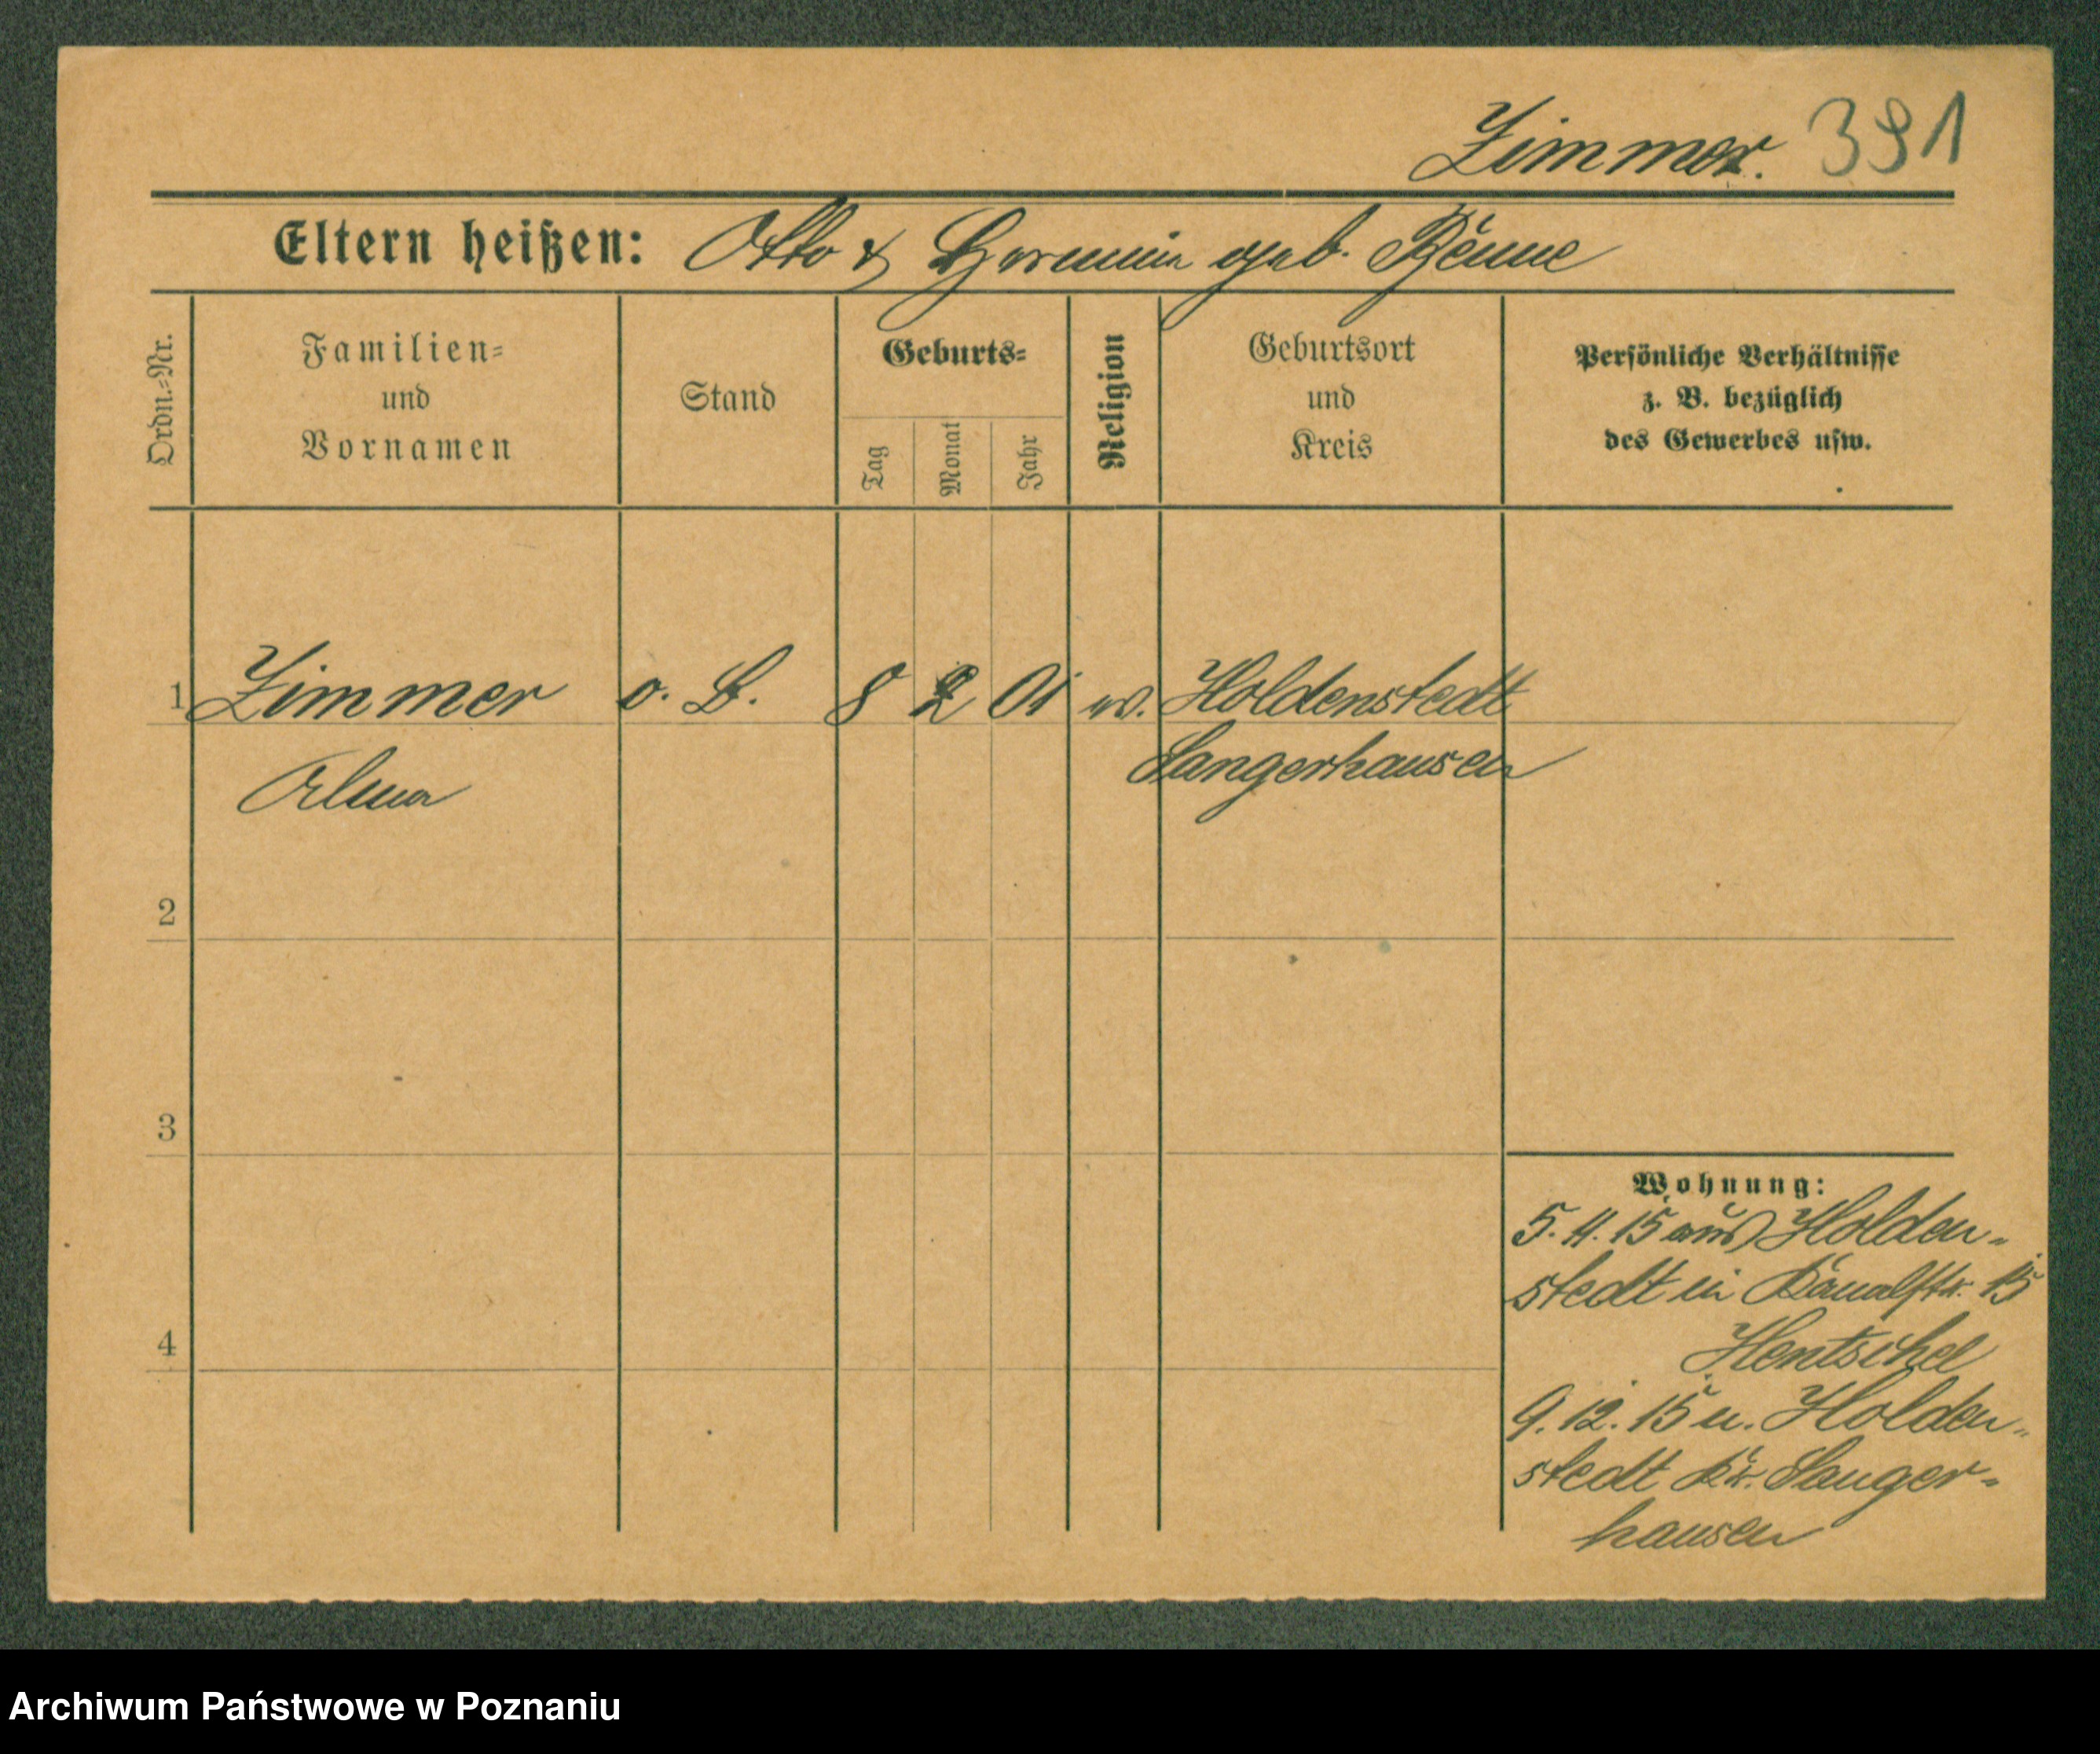 Zimmer. 391
Eltern heißen: Otto & Hermine geb.
Ordn.=Nr.
Familien=
und
Vornamen
Stand
Geburts=
Tag
Monat
Jahr
Religion
Geburtsort
und
Kreis
Persönliche Verhältnisse
z. B. bezüglich
des Gewerbes usw.
1 Zimmer o. B. 8 2 01 Holdenstedt
Alma Sangerhausen
2
3
4
Wohnung:
5. 11. 15 aus Holden-
stedt in 15
Hentschel
9. 12. 15 n. Holden-
stedt Kr. Sanger-
hausen
Archiwum Państwowe w Poznaniu